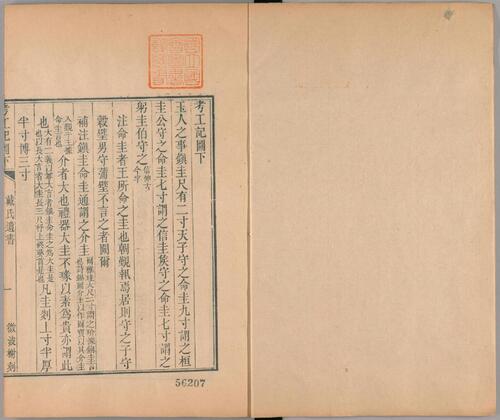 考工記圖下
玉人之事鎮圭尺有二寸天子守之命圭九寸謂之桓
圭公守之命圭七寸謂之信圭矦守之命圭七寸謂之
躬圭伯守之信伸古今字
注命圭者王所命之圭也朝覲執焉居則守之子守
穀璧男守蒲璧不言之者闕爾
補注鎮圭命圭通謂之介圭
介者大也禮器大圭不瑑以素爲貴亦謂此
也凡圭剡上寸半厚
半寸博三寸
考工記圖下
戴氏遺書
一
微波榭刻
56207